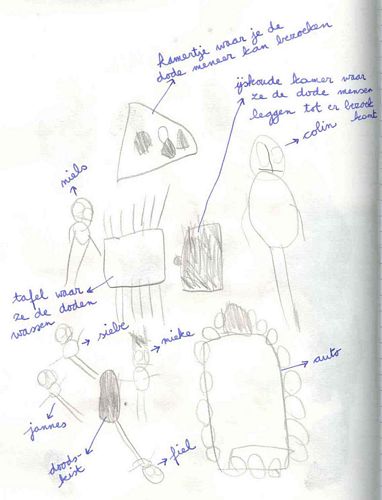 kamertje waar je de
dode meneer kan bezoeken
ijskoude kamer waar
ze de dode mensen
leggen tot er bezoek
komt
colin
niels
tafel waar
ze de doden
wassen
siebe
mieke
auto
jannes
doods-
kist
fiel